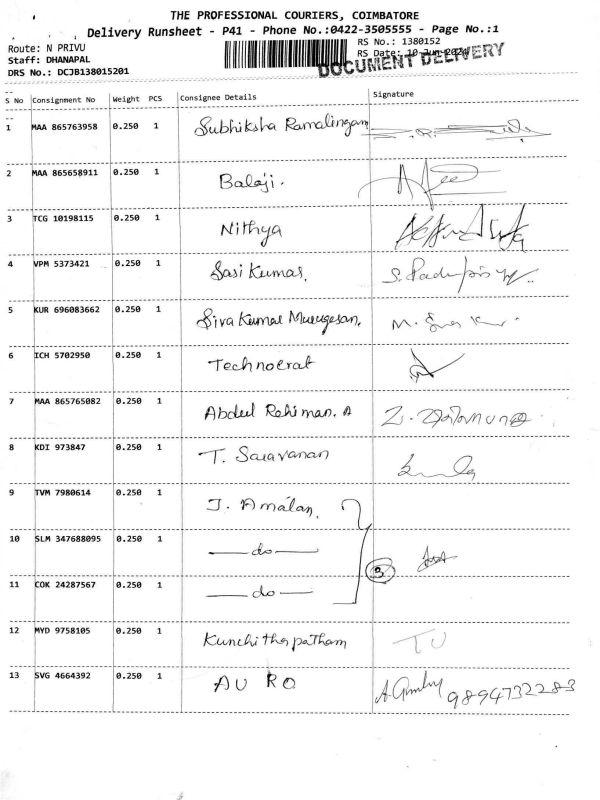 THE PROFESSIONAL COURIERS, COIMBATORE
Delivery Runsheet - P41 - Phone No.:0422-3505555 - Page No.:1
Route: N PRIVU
RS No.: 1380152
Staff: DHANAPAL
RS Date: 10-Jun-2024
DRS No.: DCJB138015201
DOCUMENT DELIVERY
S No Consignment No Weight PCS Consignee Details Signature
1 MAA 865763958 0.250 1 Subhiksha Ramalingam
2 MAA 865658911 0.250 1 Balaji.
3 TCG 10198115 0.250 1 Nithya
4 VPM 5373421 0.250 1 Sasi Kumar.
5 KUR 696083662 0.250 1 Siva Kumar Murugesan.
6 ICH 5702950 0.250 1 Technocrat
7 MAA 865765082 0.250 1 Abdul Rehiman. A
8 KDI 973847 0.250 1 T. Saravanan
9 TVM 7980614 0.250 1 J. Amalan.
10 SLM 347688095 0.250 1 — do —
3
11 COK 24287567 0.250 1 — do —
12 MYD 9758105 0.250 1 Kunchithapatham TU
13 SVG 4664392 0.250 1 AURO 9894732283